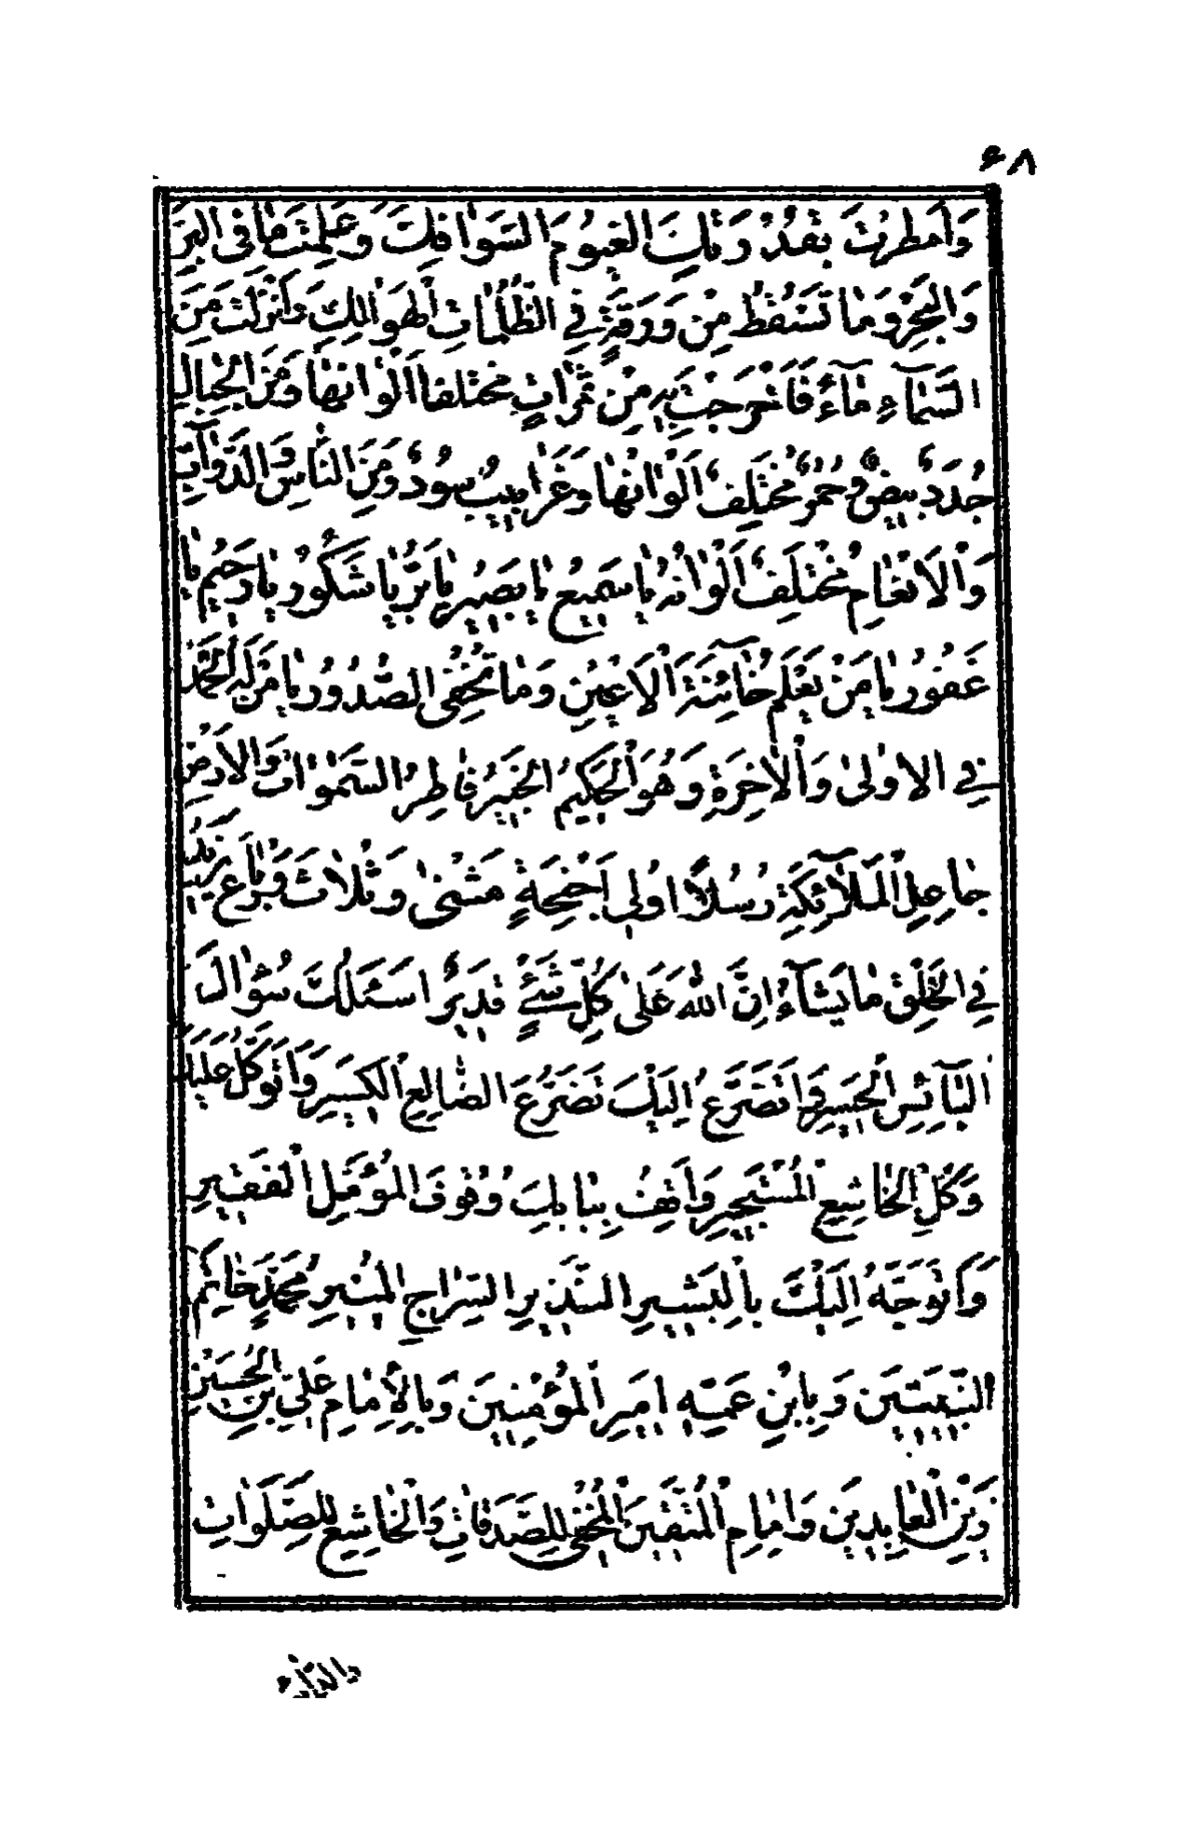 ۶۸
وَاَمْطَرَتْ بِقُدْرَتِكَ الْغُيُومَ السَّوَافِكَ وَعَلِمْتَ مَا فِى الْبَرِّ
وَالْبَحْرِ وَمَا تَسْقُطُ مِنْ وَرَقَةٍ فِي الظُّلُمَاتِ الْهَوَالِكِ وَاَنْزَلْتَ مِنَ
السَّمَاءِ مَاءً فَاَخْرَجْتَ بِهِ مِنْ ثَمَرَاتٍ مُخْتَلِفًا اَلْوَانُهَا وَمِنَ الْجِبَالِ
جُدَدٌ بِيضٌ وَحُمْرٌ مُخْتَلِفٌ اَلْوَانُهَا وَغَرَابِيبُ سُودٌ وَمِنَ النَّاسِ وَالدَّوَآبِّ
وَالْاَنْعَامِ مُخْتَلِفٌ اَلْوَانُهُ يَا سَمِيعُ يَا بَصِيرُ يَا بَرُّ يَا شَكُورُ يَا رَحِيمُ يَا
غَفُورُ يَا مَنْ يَعْلَمُ خَآئِنَةَ الْاَعْيُنِ وَمَا تُخْفِى الصُّدُورُ يَا مَنْ لَهُ الْحَمْدُ
فِي الْاُولىٰ وَالْاٰخِرَةِ وَهُوَ الْحَكِيمُ الْخَبِيرُ فَاطِرُ السَّمٰوَاتِ وَالْاَرْضِ
جَاعِلِ الْمَلَآئِكَةِ رُسُلًا اُولِى اَجْنِحَةٍ مَثْنىٰ وَثُلَاثَ وَرُبَاعَ يَزِيدُ
فِي الْخَلْقِ مَا يَشَآءُ اِنَّ اللهَ عَلىٰ كُلِّ شَيْءٍ قَدِيرٌ اَسْئَلُكَ سُؤَالَ
الْبَآئِسِ الْحَسِيرِ وَاَتَضَرَّعُ اِلَيْكَ تَضَرُّعَ الضَّالِعِ الْكَسِيرِ وَاَتَوَكَّلُ عَلَيْكَ
تَوَكُّلَ الْخَاشِعِ الْمُسْتَجِيرِ وَاَقِفُ بِبَابِكَ وُقُوفَ الْمُؤَمِّلِ الْفَقِيرِ
وَاَتَوَجَّهُ اِلَيْكَ بِالْبَشِيرِ النَّذِيرِ السِّرَاجِ الْمُنِيرِ مُحَمَّدٍ خَاتَمِ
النَّبِيِّينَ وَبِابْنِ عَمِّهِ اَمِيرِ الْمُؤْمِنِينَ وَبِالْاِمَامِ عَلِيِّ بْنِ الْحُسَيْنِ
زَيْنِ الْعَابِدِينَ وَاِمَامِ الْمُتَّقِينَ الْمُخْفِى لِلصَّدَقَاتِ وَالْخَاشِعِ لِلصَّلَوَاتِ